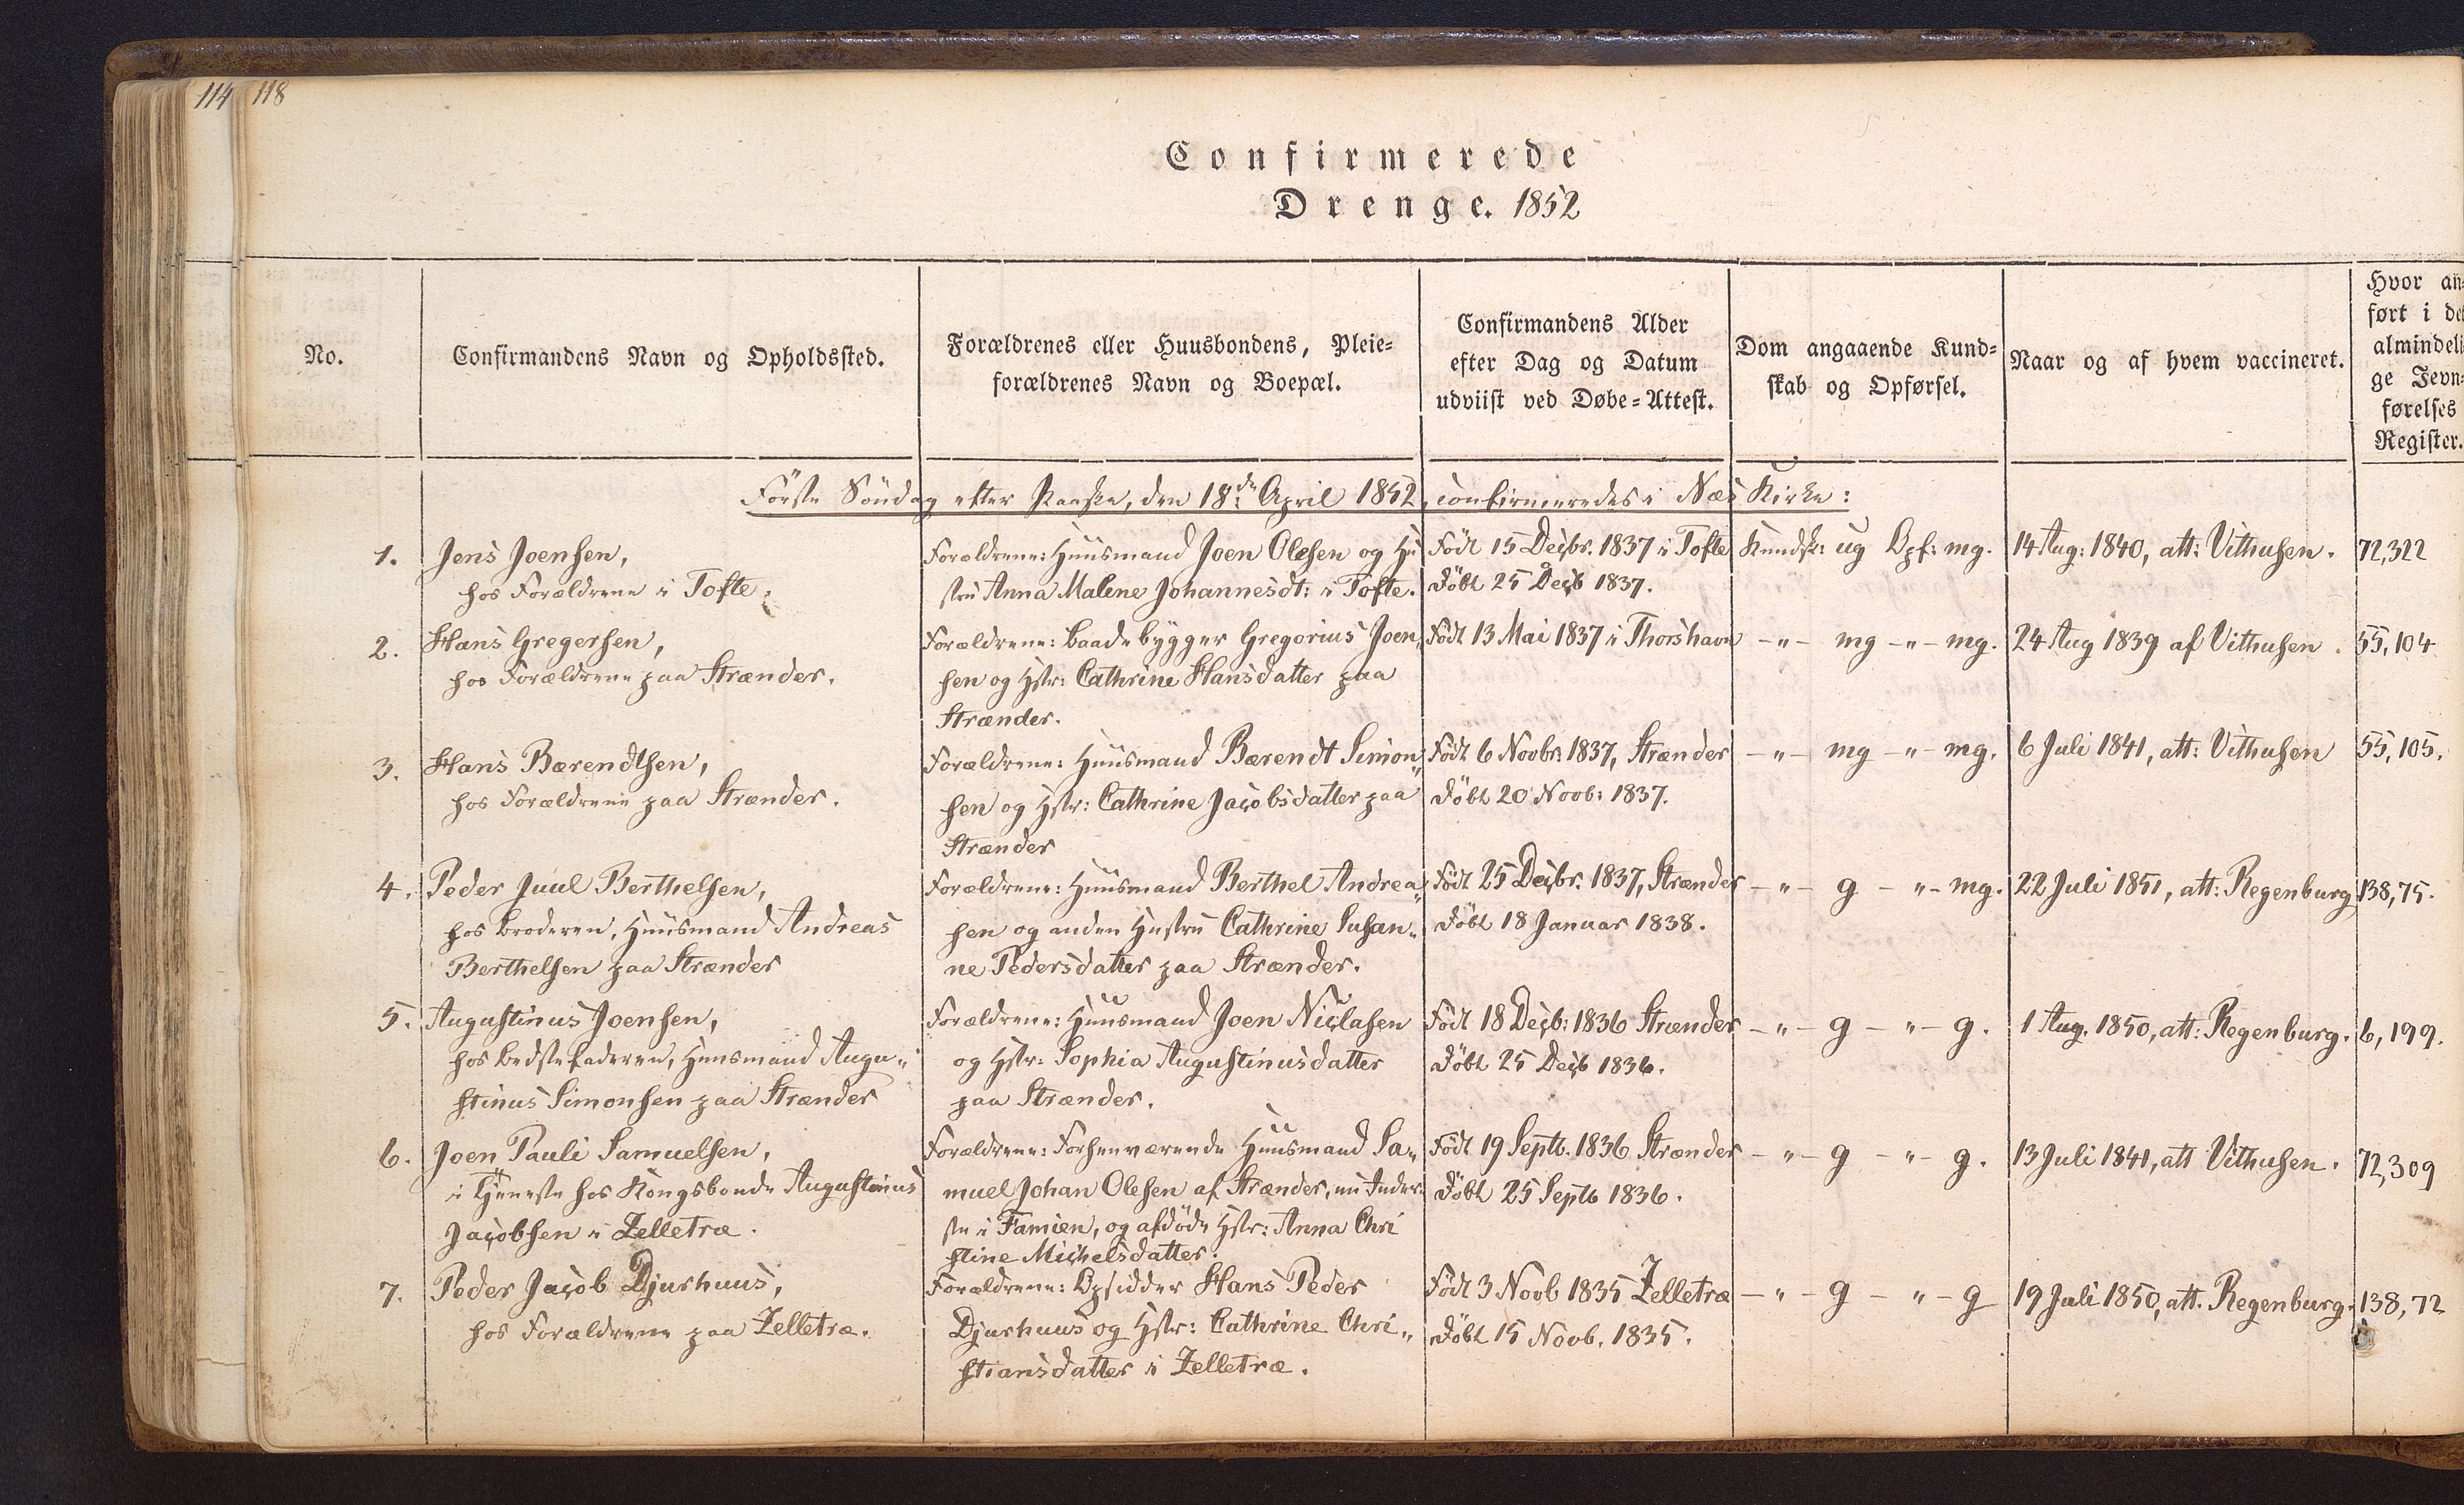 114 118
Confirmerede
Drenge. 1852
No.
Confirmandens Navn og Opholdssted.
Forældrenes eller Huusbondens, Pleie=
forældrenes Navn og Boepæl.
Confirmandens Alder
efter Dag og Datum
udviist ved Døbe=Attest.
Dom angaaende Kund=
skab og Opførsel.
Naar og af hvem vaccineret.
Hvor an=
ført i de
almindeli
ge Jevn=
førelses
Register.
Förste Söndag efter Paaske, den 18de April 1852, confirmeredes i Næs Kirke:
1.
Jens Joensen,
hos Forældrene i Tofte.
Forældrene: Huusmand Joen Olesen og Hu
stru Anna Malene Johannesdt: i Tofte.
Födt 15 Decbr. 1837 i Tofte
Döbt 25 Decb 1837.
Kundsk: ug Opf: mg.
14 Aug: 1840, att: Vithusen.
72,322
2.
Hans Gregersen,
hos Forældrene paa Strænder.
Forældrene: Baadebygger Gregorius Joen„
sen og Hstr: Cathrine Hansdatter paa
Strænder.
Födt 13 Mai 1837 i Thorshavn
-„- mg -„- mg.
24 Aug 1839 af Vithusen.
55,104
3.
Hans Bærendtsen,
hos Forældrene paa Strænder.
Forældrene: Huusmand Bærendt Simon„
sen og Hstr: Cathrine Jacobsdatter paa
Strænder
Födt 6 Novbr: 1837, Strænder
Döbt 20 Novb: 1837.
-„- mg -„- mg.
6 Juli 1841, att: Vithusen
55,105.
4.
Peder Juul Berthelsen,
hos Broderen, Huusmand Andreas
Berthelsen paa Strænder
Forældrene: Huusmand Berthel Andrea„
sen og anden Hustru Cathrine Susan„
ne Pedersdatter paa Strænder.
Födt 25 Decbr. 1837, Strænder
Döbt 18 Januar 1838.
-„- g -„- mg.
22 Juli 1851, att: Regenburg
138,75.
5.
Augustinus Joensen,
hos Bedstefaderen, Huusmand Augu„
stinus Simonsen paa Strænder
Forældrene: Huusmand Joen Niclasen
og Hstr: Sophia Augustinusdatter
paa Strænder.
Födt 18 Decb: 1836 Strænder
Döbt 25 Decb 1836.
-„- g -„- g.
1 Aug. 1850, att: Regenburg.
6,199.
6.
Joen Pauli Samuelsen,
i Tjeneste hos Kongsbonde Augustinus
Jacobsen i Zelletræ.
Forældrene: Forhenværende Huusmand Sa„
muel Johan Olesen af Strænder, nu Inder
ste i Famien, og afdöde Hstr: Anna Chri
stine Michelsdatter.
Födt 19 Septb. 1836 Strænder
Döbt 25 Septb 1836.
-„- g -„- g.
13 Juli 1841, att Vithusen.
72,309
7.
Peder Jacob Djurhuus,
hos Forældrene paa Zelletræ.
Forældrene: Opsidder Hans Peder
Djurhuus og Hstr: Cathrine Chri„
stiansdatter i Zelletræ.
Födt 3 Novb 1835 Zelletræ
Döbt 15 Novb. 1835.
-„- g -„- g
19 Juli 1850, att. Regenburg.
138,72